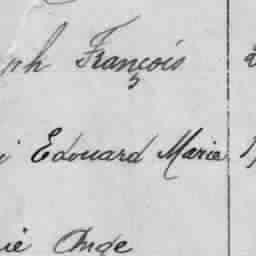 ph François
Edouard Marie
ie Ange